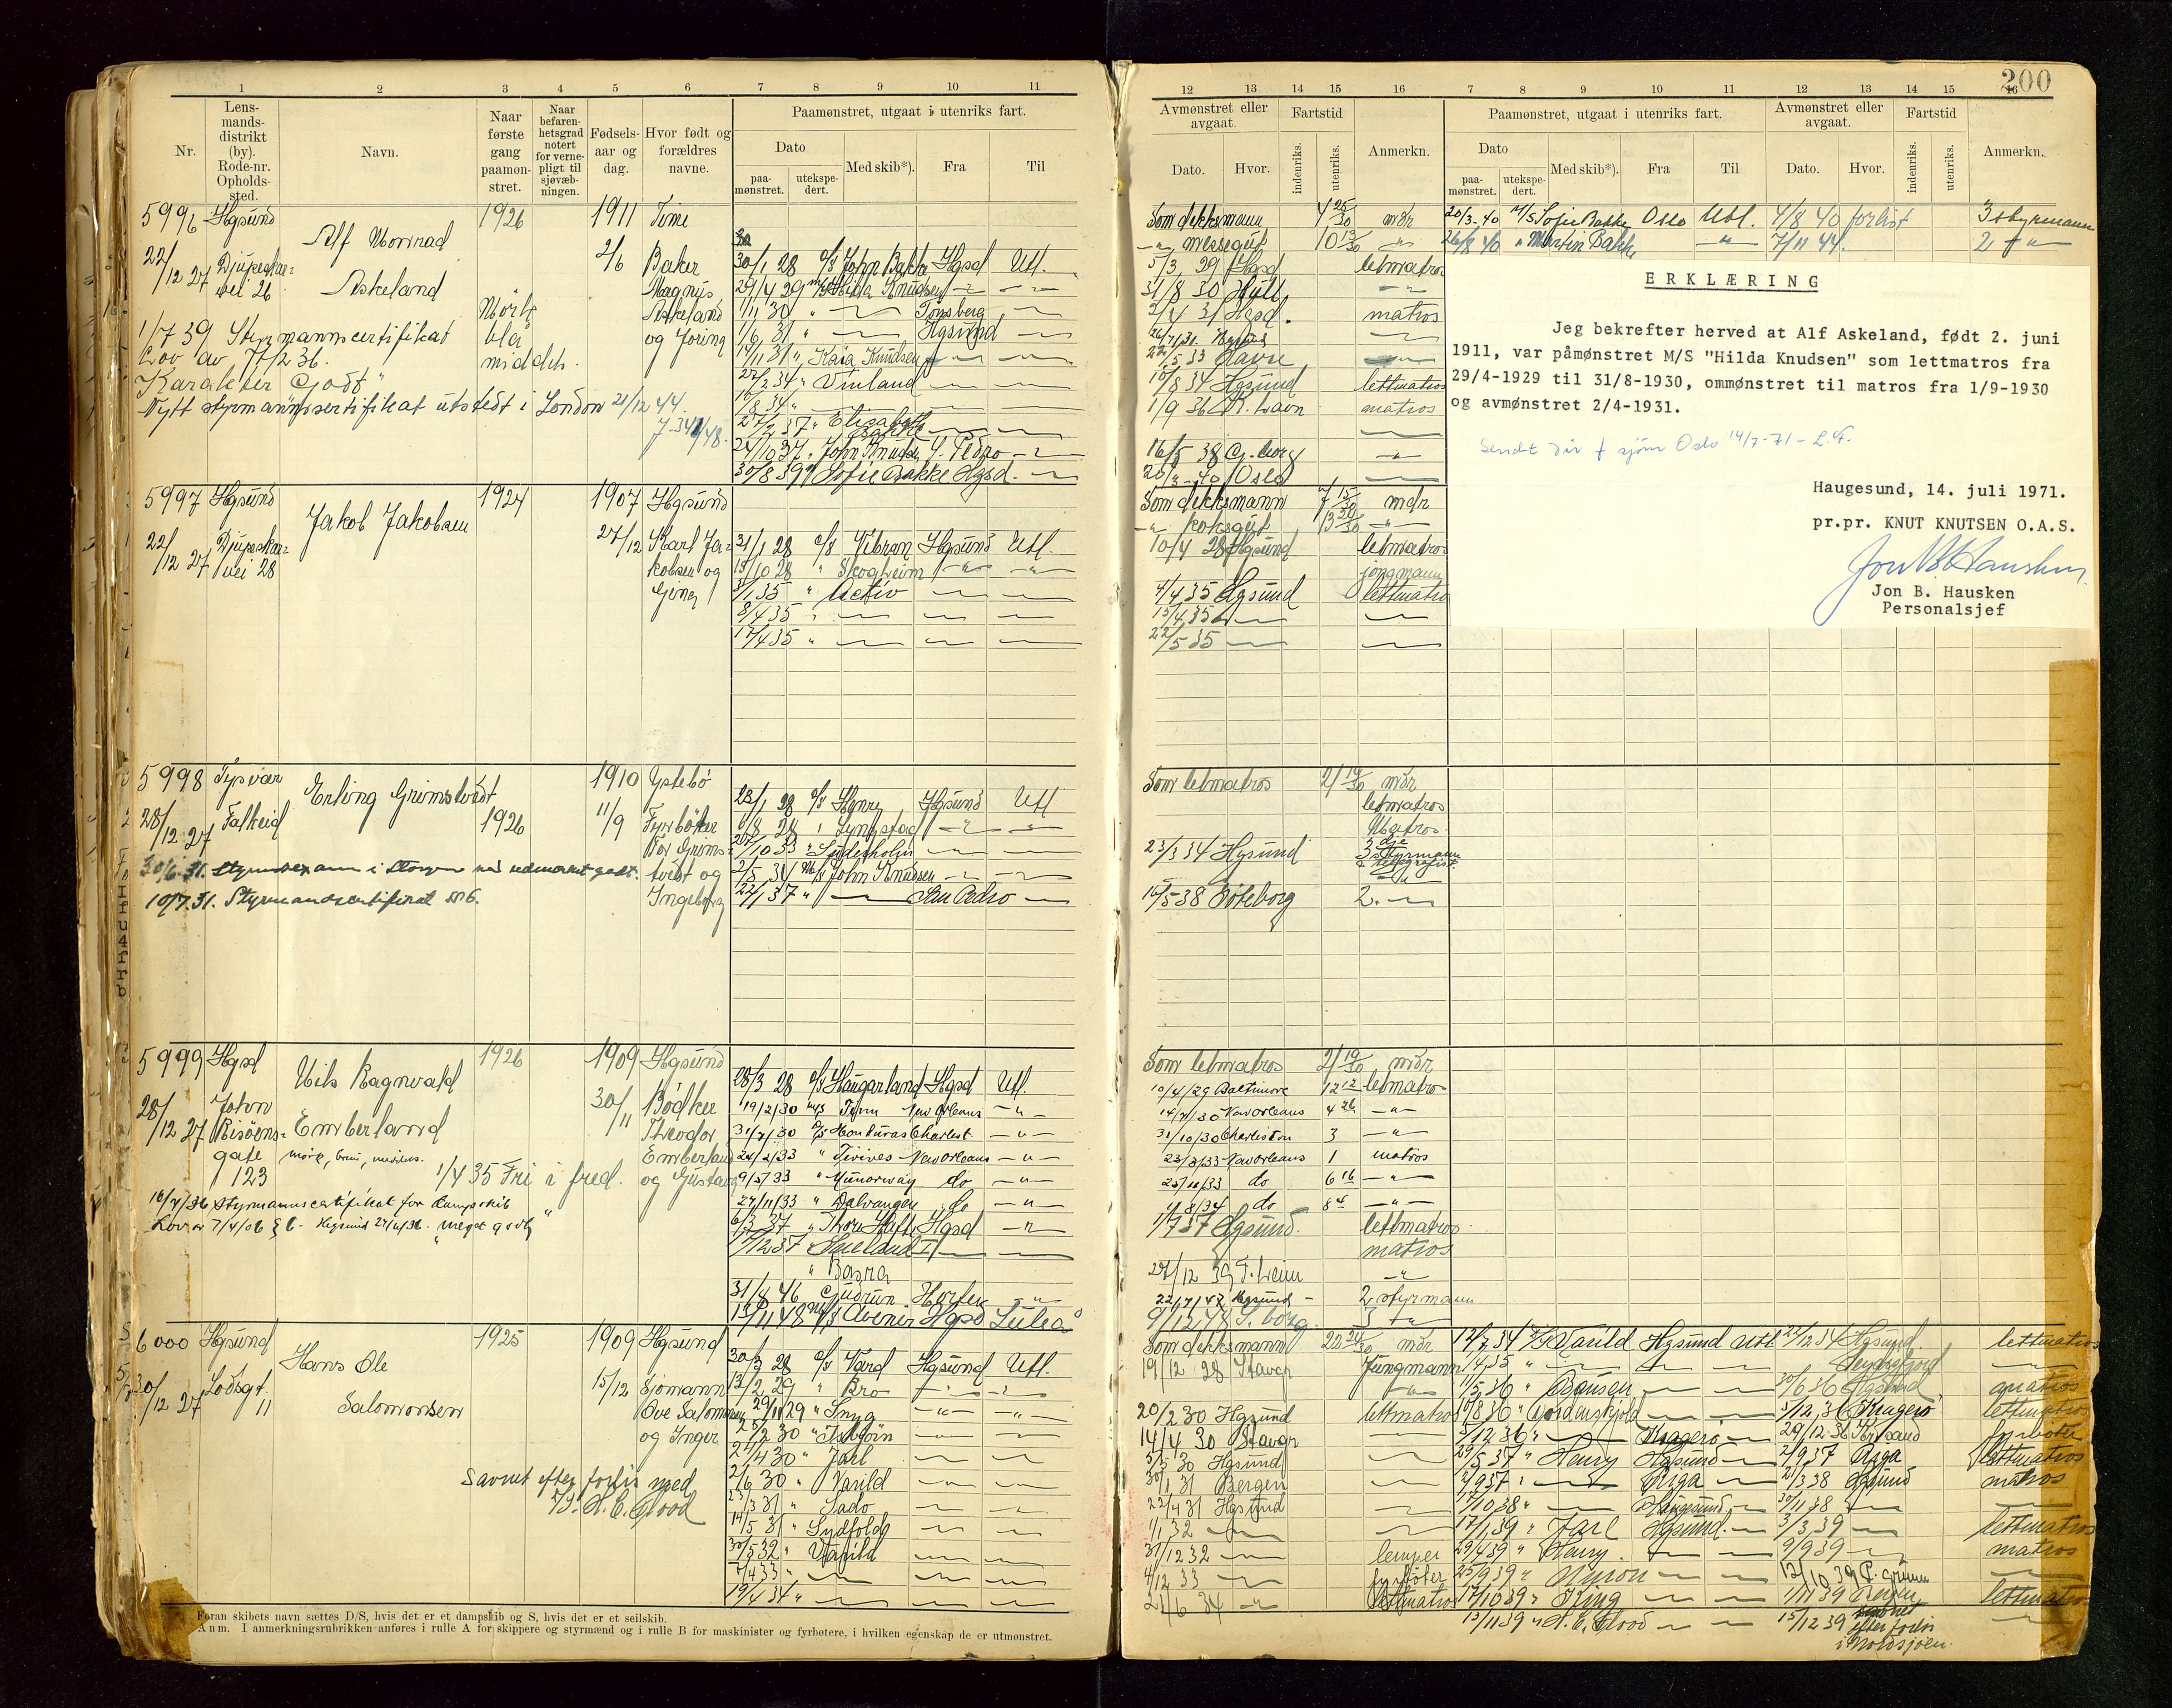 200
1 2 3 4 5 6 7 8 9 10 11
Nr.
Lens-
mands-
distrikt
(by).
Rode-nr.
Opholds-
sted.
Navn.
Naar
første
gang
paamøn-
stret.
Naar
befaren-
hetsgrad
notert
for verne-
pligt til
sjøvæb-
ningen.
Fødsels-
aar og
dag.
Hvor født og
forældres
navne.
Paamønstret, utgaat i utenriks fart.
Dato
paa-
mønstret.
utekspe-
dert.
Med skib*).
Fra
Til
12 13 14 15 16 7 8 9 10 11 12 13 14 15 16
Avmønstret eller
avgaat.
Dato. Hvor.
Fartstid
indenriks.
utenriks.
Anmerkn.
Paamønstret, utgaat i utenriks fart.
Dato
paa-
mønstret.
utekspe-
dert.
Med skib*).
Fra
Til
Avmønstret eller
avgaat.
Dato. Hvor.
Fartstid
indenriks.
utenriks.
Anmerkn.
5996 Hgsund 1926 1911 Time
Alf Konrad
22/12 27 Djupeskar-
vei 26
Askeland
2/6 Baker
Magnus
Askeland
og Joring
Mørk
blå
middels.
1/7 39 Styrmannscertifikat
Lov av 7/2 36.
Karakter "Godt"
Nytt styrmannssertifikat utstedt i London 21/12 44.
30/1 28 d/s John Bakke Hgsd Utl.
29/4 29 m/s Hilda Knudsen
1/11 30 " Tønsberg
1/6 31 Hgsund
14/11 31 " Kaia Knudsen
27/2 34 " Vinland
16/8 34 "
27/2 37 " Elisabeth Bakke
24/10 37 " John Knudsen S. Pedro
30/8 39 " Sofie Bakke Hgsd.
Som dekksmann 4 25/30 mdr
" messegut 10 13/30
5/3 29 Hgsd letmatros
31/8 30 Hull
2/4 31 Hgsd. matros
22/5 33 Havre
15/8 34 Hgsund lettmatros
1/9 36 Kr. havn matros
16/5 38 G. borg
20/3 40 Oslo
20/3-40 M/S Sofie Bakke Oslo Utl. 4/8 40 forlist 3 styrmann
26/8 40 " Martin Bakke 7/11 44. 2
ERKLÆRING
Jeg bekrefter herved at Alf Askeland, født 2. juni
1911, var påmønstret M/S "Hilda Knudsen" som lettmatros fra
29/4-1929 til 31/8-1930, ommønstret til matros fra 1/9-1930
og avmønstret 2/4-1931.
Sendt Dir f sjøm Oslo 14/7-71 - L.F.
Haugesund, 14. juli 1971.
pr.pr. KNUT KNUTSEN O.A.S.
Jon B. Hausken
Personalsjef
5997 Hgsund 1924 1907 Hgsund
Jakob Jakobsen
22/12 27 Djupeskar-
vei 28
27/12 Karl Ja-
kobsen og
Giner
31/1 28 d/s Vibran Hgsund Utl.
15/10 28 " Skogheim
3/1 35 " Activ
8/4 35 "
17/4 35 "
Som dekksmann 7 15/30 mdr
" koksgut 13 20/30
10/4 28 Hgsund letmatros
jongmann
4/4 35 Hgsund lettmatros
15/4 35
22/5 35
5998 Tysvær 1910 Ystebö
Erling Grimstvedt
28/12 27 Falkeid 1926 11/9 Fyrböter
Tor Grims-
tvedt og
Ingeborg
30/6 31. Styrmannsexamen i Haugesund med udmerket godt.
10/7 31. Styrmandscertifikat § 6.
23/1 28 d/s Henry Hgsund Utl
6/8 28 " Lyngstad
27/10 33 " Söderholm
2/5 34 M/s John Knudsen
22/1 37 " San Pedro
Som letmatros 21 19/30 mdr
letmatros
Matros
23/3 34 Hgsund 3dje
styrmann
& telegrafist
16/5-38 Göteborg 2.
5999 Hgsd 1926 1909 Hgsund
Nils Ragnvald
28/12 27 John
Risöens-
gate
123
Emberland
30/11 Bödker
Theodor
Emberland
og Gustava
mørk, brun, middels.
1/4 35 Fri i fred.
16/7/36 Styrmannscertifikat for dampskib
Lov av 7/4/06 § 6 - Hgsund 27/6/36. "Meget godt"
28/3 28 d/s Haugarland Hgsd Utl.
19/2/30 m/s Finn New Orleans
31/7/30 D/s Honduras Charlest.
24/2/33 " Tivives New Orleans
9/5/33 " Munorway do
27/11/33 " Dalvangen do
6/3 37 " Thor Hgsd
1/12 37 " Sneland I
" Basra
31/8 46 " Gudrun Horten
15/11 48 M/s Avenir Hgsd Luleå
Som letmatros 21 19/30 mdr
10/4/29 Baltimore 12 12 letmatros
14/7/30 New Orleans 4 26
31/10/30 Charleston 3
23/3/33 New Orleans 1 matros
25/11/33 do 6 16
4/8/34 do 8 4
1/9 37 Hgsund. lettmatros
matros
27/12 39 T. heim
22/7/47 Hgsund 2 styrmann
9/12 48 S. borg 3
6000 Hgsund 1925 1909 Hgsund
Hans Ole
30/12 27 Lodsgt.
11
Salomonsen
15/12 Sjømann
Ove Salomonsen
og Inger
Savnet efter forlis med
D/S. H. C. Flood
30/3 28 d/s Vard Hgsund Utl.
13/2 29 " Bro
29/11 29 " Snyg
25/2 30 " Asbjörn
24/4 30 " Jarl
2/6 30 " Varild
23/3 31 " Sado
14/5 31 " Sydfold
30/5 32 " Varild
7/4 33 "
19/1 34 "
Som dekksmann 22 24/30 mdr
19/12 28 Stavgr Jungmann
20/2 30 Hgsund lettmatros
14/4 30 Stavgr
5/5 30 Hgsund
30/1 31 Bergen
22/4 31 Hgsund
1/1 32
31/12 32 lemper
4/12 33 fyrböter
2/6 34 lettmatros
12/7 34 D/s Varild Hgsund Utl 22/12 34 Hgsund lettmatros
1/4 35 " Seydisfjord
11/5 36 " Bansen 30/6 36 Hgsund matros
10/8 36 " Tordenskjold 5/12 36 Kragerö lettmatros
5/12 36 " Kragerö 29/12 36 Kr.sand fyrböter
29/5 37 " Henry Hgsund 2/9 37 Riga lettmatros
2/9 37 " Riga 21/3 38 Hgsund matros
17/10 38 " Haugesund 30/11 38
17/1 39 " Jarl Hgsund. 3/3 39 lettmatros
29/4 39 " Henry 9/9 39 matros
25/9 39 " Byron 12/10 39
17/10 39 " Kring 1/11 39 Bergen lettmatros
13/11 39 " H. C. Flood 15/12 39 savnet
efter forlis
i Nordsjøen.
Foran skibets navn sættes D/S, hvis det er et dampskib og S, hvis det er et seilskib.
Anm. I anmerkningsrubrikken anføres i rulle A for skippere og styrmænd og i rulle B for maskinister og fyrbøtere, i hvilken egenskap de er utmønstret.